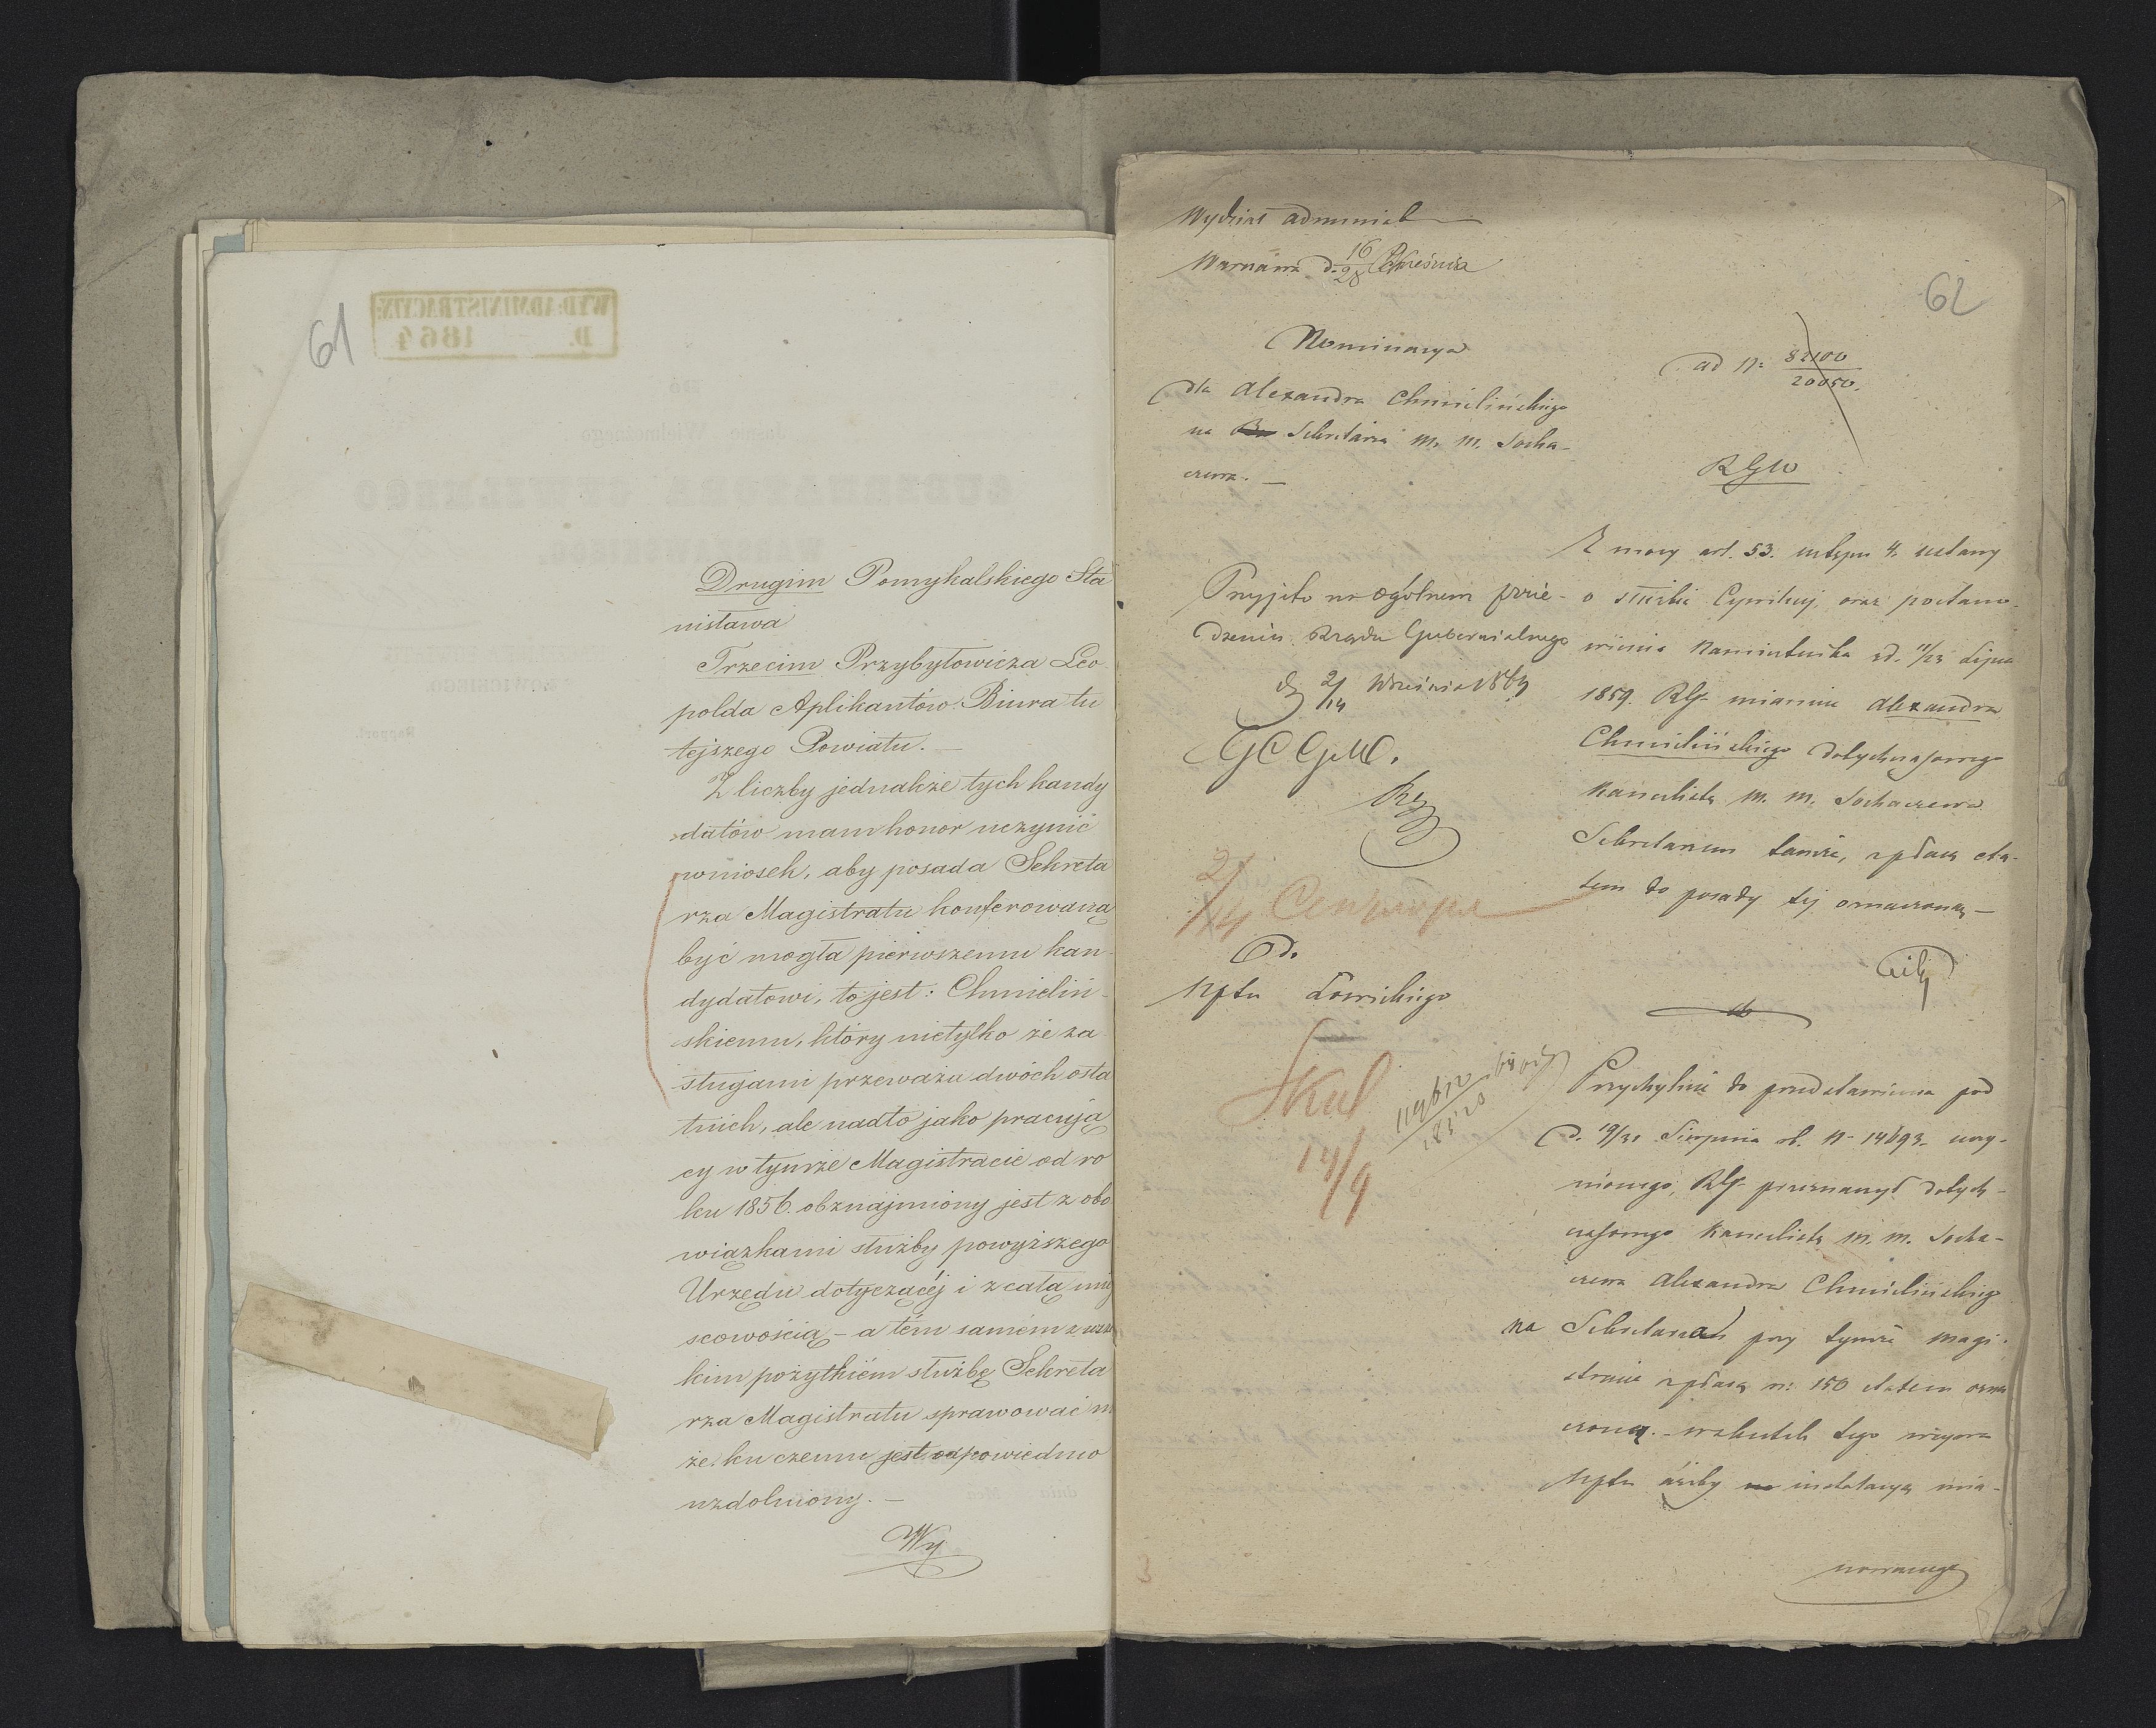 61
Drugim Pomykalskiego Sta
nisława
Trzecim Przybyłowicza Leo
polda Aplikantów Biura tu
tejszego Powiatu. —
Z liczby jednakże tych kandy
datów mam honor uczynić
wniosek, aby posada Sekreta
rza Magistratu konferowaną
być mogła pierwszemu kan-
dydatowi, to jest: Chmieliń-
skiemu, który nietylko że za
sługami przeważa dwóch osta
tnich, ale nadto jako pracują
cy w tymże Magistracie od ro
ku 1856. obznajmiony jest z obo
wiązkami służby powyższego
Urzędu dotyczącéj i z całą miéj
scowością – a tém samém z
kim pożytkiém służbę Sekreta
rza Magistratu sprawować m
że, ku czemu jest odpowiednio
uzdolniony. —
Wy
62
Wydział administ
Warszawa d. 16/28 Września
Nominacya
dla Alexandra Chmielińskiego
na Sekretarza M. M. Socha-
czewa. —
Przyjęto na ogólnem posie-
dzeniu Rządu Gubernialnego
d. 2/14 Września 1864
GCGW.
2/14 Сентября
Do
Nptu Łowickiego
14/9
ad N: 82100/20050.
RGW
Z mocy art. 53. ustępu 4. ustawy
o służbie Cywilnej, oraz postano-
wienia Namiestnika z d. 11/23 Lipca
1859. RG mianuje Alexandra
Chmielińskiego dotychczasowego
Kancelistę M. M. Sochaczewa
Sekretarzem tamże, z płacą eta-
tem do posady tej oznaczoną —
Przychylnie do przedstawienia pod
d. 19/31 Sierpnia rb. N 14693 uczy-
nionego, RG przeznaczył dotych-
czasowego Kancelistę M. M. Socha-
czewa Alexandra Chmielińskiego
na Sekretarza przy tymże Magi-
stracie z płacą rs: 150 etatem ozna
czoną. – wskutek tego wzywa
Nptu ażeby instalacyą mia-
nowanego